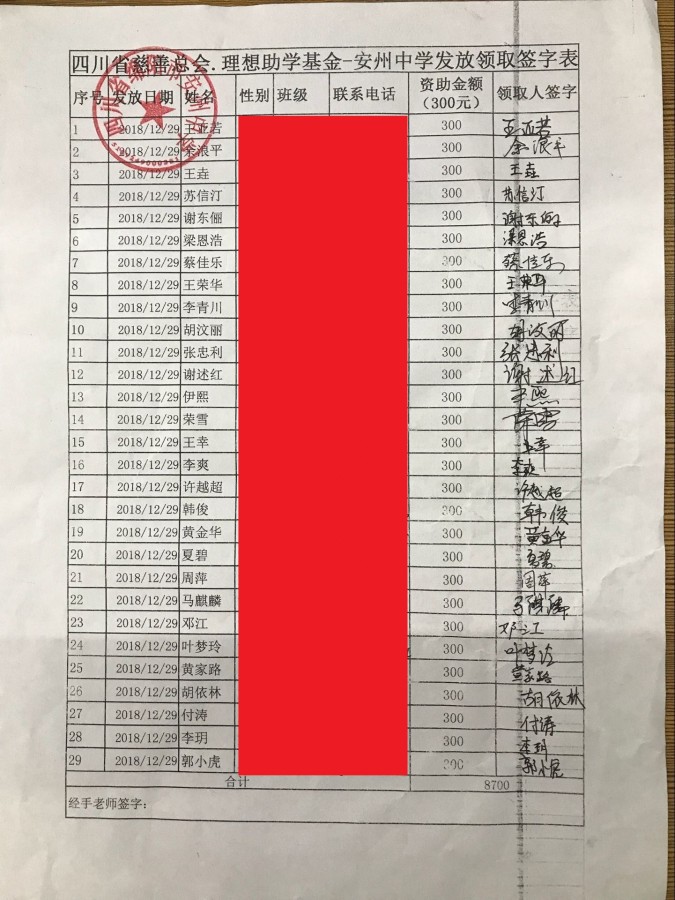 四川省慈善总会.理想助学基金-安州中学发放领取签字表
序号 发放日期 姓名 性别 班级 联系电话 资助金额(300元) 领取人签字
1 2018/12/29 王亚若 300 王亚若
2 2018/12/29 余浪平 300 余浪平
3 2018/12/29 王垚 300 王垚
4 2018/12/29 苏信汀 300 苏信汀
5 2018/12/29 谢东俪 300 谢东俪
6 2018/12/29 梁恩浩 300 梁恩浩
7 2018/12/29 蔡佳乐 300 蔡佳乐
8 2018/12/29 王荣华 300 王荣华
9 2018/12/29 李青川 300 李青川
10 2018/12/29 胡汶丽 300 胡汶丽
11 2018/12/29 张忠利 300 张忠利
12 2018/12/29 谢述红 300 谢术红
13 2018/12/29 伊熙 300 伊熙
14 2018/12/29 荣雪 300 荣雪
15 2018/12/29 王幸 300 王幸
16 2018/12/29 李爽 300 李爽
17 2018/12/29 许越超 300 许越超
18 2018/12/29 韩俊 300 韩俊
19 2018/12/29 黄金华 300 黄金华
20 2018/12/29 夏碧 300 夏碧
21 2018/12/29 周萍 300 周萍
22 2018/12/29 马麒麟 300 马麒麟
23 2018/12/29 邓江 300 邓江
24 2018/12/29 叶梦玲 300 叶梦玲
25 2018/12/29 黄家路 300 黄家路
26 2018/12/29 胡依林 300 胡依林
27 2018/12/29 付涛 300 付涛
28 2018/12/29 李玥 300 李玥
29 2018/12/29 郭小虎 300 郭小虎
合计 8700
经手老师签字: